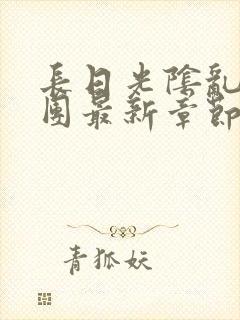 長日光陰亂
團最新章節
青狐妖